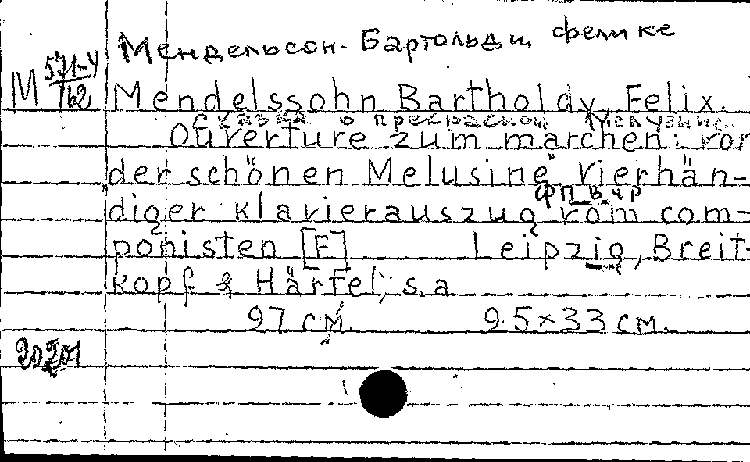 Мендельсон-Бартольди, феликс
М 571-4/162
Mendelssohn Bartholdy, Felix.
Сказка о прекрасной Мелузине
Ouverture zum märchen: von
der schönen Melusine" vierhän-
фп. в 4 р
diger klavierauszug vom com-
ponisten [F] Leipzig, Breit-
kopf & Härtel, s. a
27 см. 25×33 см.